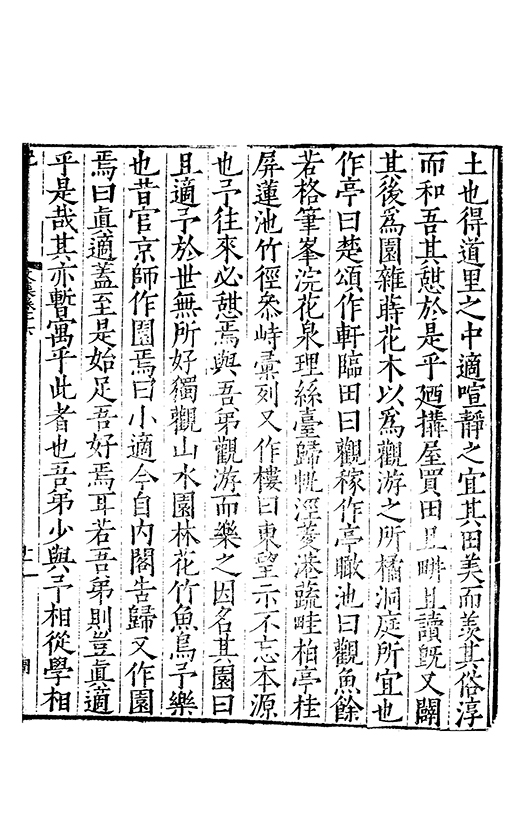 土也得道里之中適喧靜之宜其田美而羨其俗淳
而和吾其憇於是乎廼搆屋買田且畊且讀旣又闢
其後爲園雜蒔花木以爲觀游之所橘洞庭所宜也
作亭曰楚頌作軒臨田曰觀稼作亭瞰池曰觀魚餘
若格筆峯浣花泉理絲臺歸帆涇菱港蔬畦柏亭桂
屏蓮池竹徑叅峙彚列又作樓曰東望示不忘本源
也予往來必憇焉與吾弟觀游而樂之因名其園曰
且適予於世無所好獨觀山水園林花竹魚鳥予樂
也昔官京師作園焉曰小適今自内閣告歸又作園
焉曰眞適蓋至是始足吾好焉耳若吾弟則豈眞適
乎是哉其亦暫寓乎此者也吾弟少與予相從學相